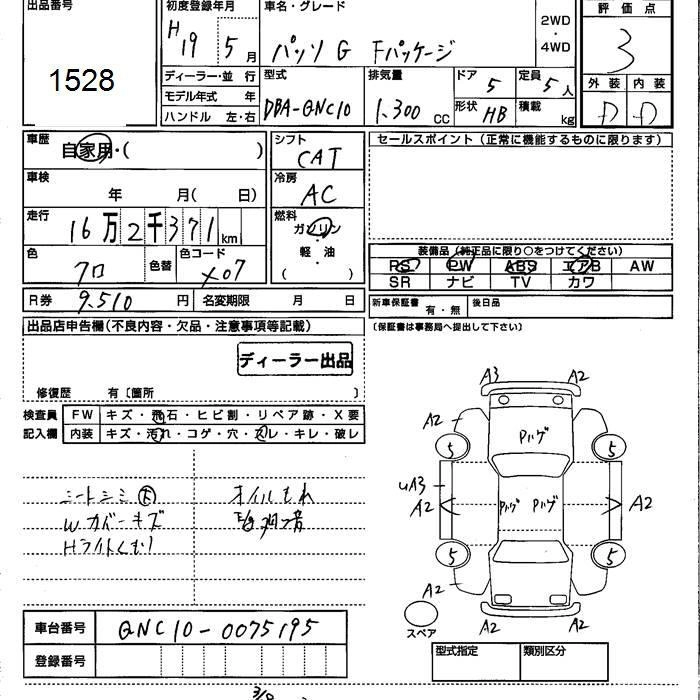 出品番号 初度登録年月 車名・グレード 評価点
1528
H 19 5月 パッソ G Fパッケージ 2WD・4WD 3
ディーラー・並行 型式 排気量 ドア 5 定員 5人 外装 内装
モデル年式 年 DBA-QNC10 1.300 CC 形状 HB 積載 kg D D
ハンドル 左・右
車歴 自家用・( ) シフト CAT セールスポイント (正常に機能するものに限ります)
車検 年 月( 日) 冷房 AC
走行 16万2千371km 燃料 ガソリン・軽・油 ( )
色 クロ 色替 色コード X07 装備品 (純正品に限り○をつけてください)
RS PW ABS エアB AW
SR ナビ TV カワ
R券 9.510 円 名変期限 月 日 新車保証書 有・無 後日品
(保証書は事務局へ提出して下さい)
出品店申告欄(不良内容・欠品・注意事項等記載)
ディーラー出品
修復歴 有〔箇所 〕
検査員 FW キズ・飛石・ヒビ割・リペア跡・X要
記入欄 内装 キズ・汚れ・コゲ・穴・スレ・キレ・破レ
シートシミ大 オイルもれ
Wカバーキズ
Hライトくもり
A3 A2
A2 A2
5 5
UA3
A2 A2
5 5
A2 A2
A2 A2
スペア
車台番号 QNC10-0075195
登録番号
型式指定 類別区分